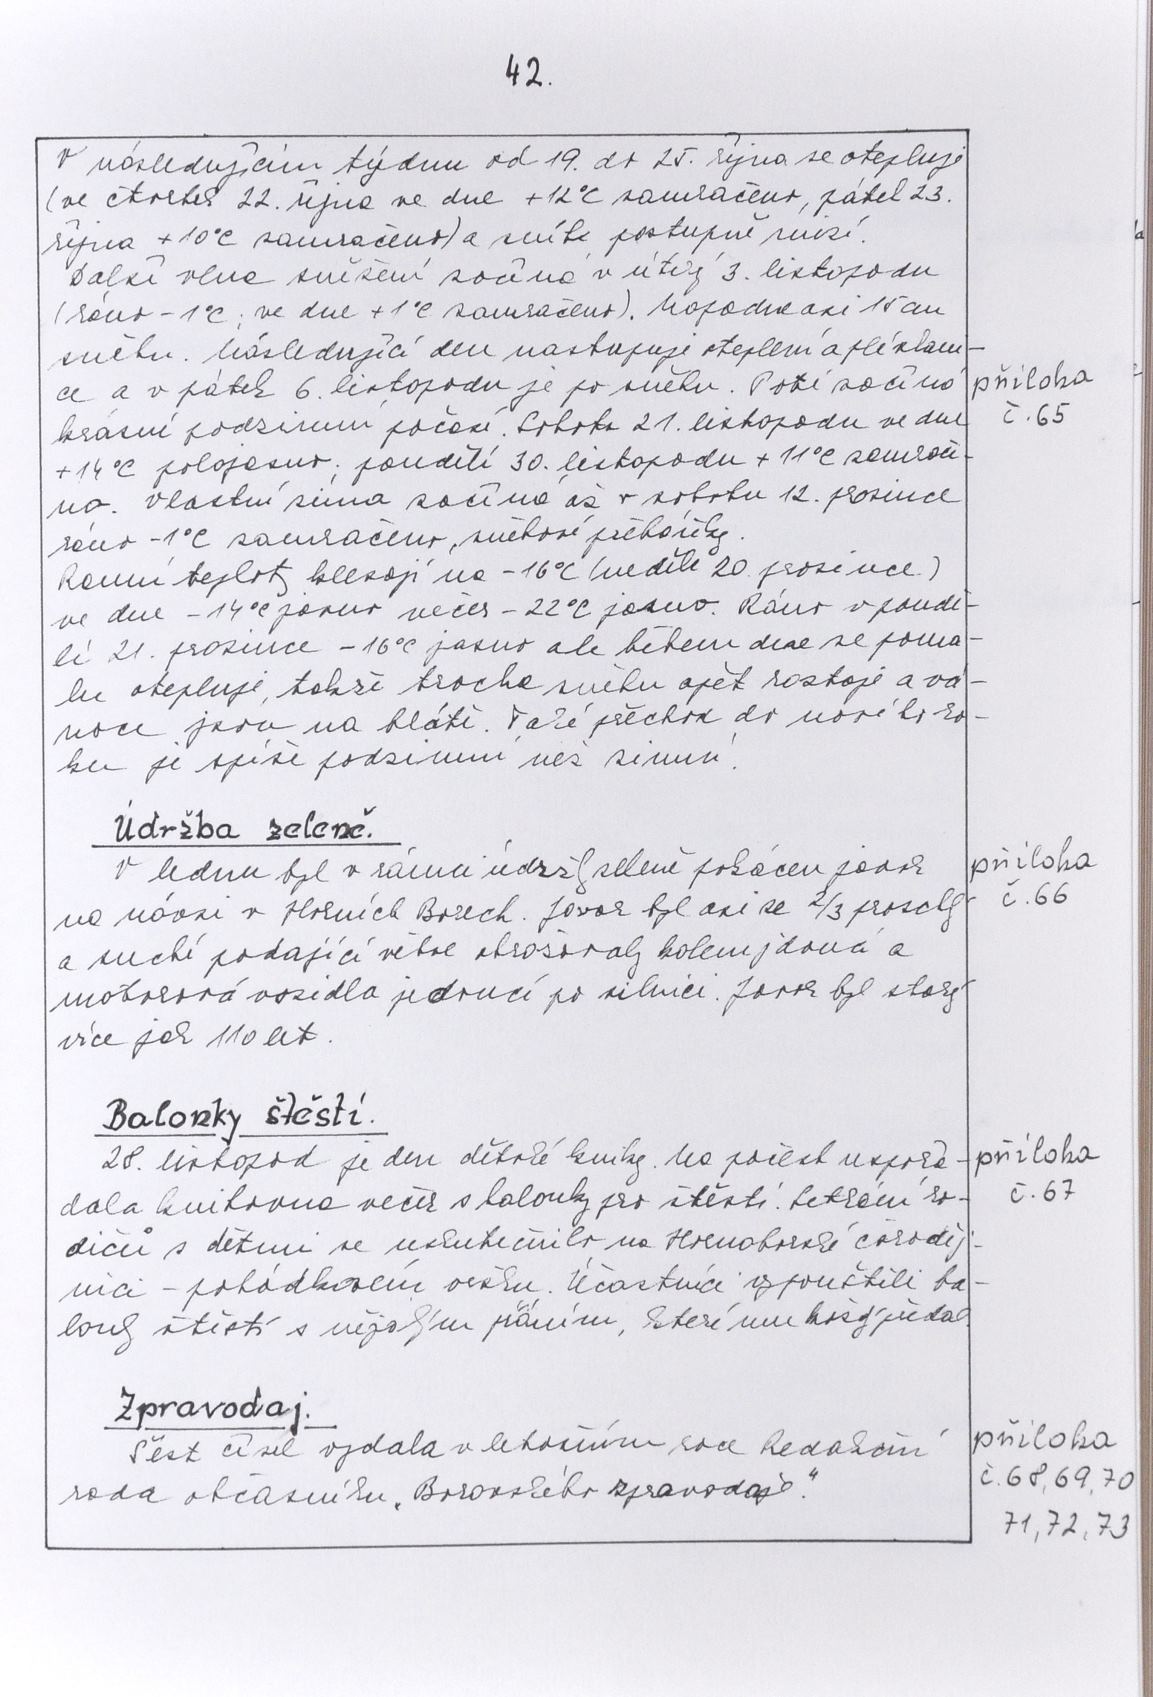 42.
V následujícím týdnu od 19. do 25. října se otepluje
(ve čtvrtek 22. října ve dne +12°C zamračeno, pátek 23.
října +10°C zamračeno) a sníh postupně mizí.
Další vlna sněžení začíná v úterý 3. listopadu
(ráno -1°C, ve dne +1°C zamračeno). Napadne asi 15 cm
sněhu. Následující den nastupuje oteplení a
ce a v pátek 6. listopadu je po sněhu. Poté začíná
příloha
č. 65
krásné podzimní počasí. Sobota 21. listopadu ve dne
+14°C polojasno, pondělí 30. listopadu +11°C zamrače-
no. Vlastní zima začíná až v sobotu 12. prosince
ráno -1°C zamračeno, sněhové přeháňky.
Ranní teploty klesají na -16°C (neděle 20. prosince)
ve dne -14°C jasno večer -22°C jasno. Ráno v pondě-
lí 21. prosince -16°C jasno ale během dne se poma-
lu otepluje, takže trocha sněhu opět roztaje a vá-
noce jsou na blátě. Také přechod do nového ro-
ku je spíše podzimní než zimní.
Údržba zeleně.
V lednu byl v rámci údržby zeleně pokácen javor
příloha
č. 66
na návsi v Horních Borech. Javor byl asi ze 2/3 proschlý
a suché padající větve ohrožovaly kolemjdoucí a
motorová vozidla jedoucí po silnici. Javor byl starý
více jak 110 let.
Balonky štěstí.
28. listopad je den dětské knihy. Na počest uspořá-
příloha
č. 67
dala knihovna večer s balonky pro štěstí. Setkání ro-
dičů s dětmi se uskutečnilo na Hornoborské čaroděj-
nici - pohádkovém vršku. Účastníci vypouštěli ba-
lonky štěstí s nějakým přáním, které mu každý předal.
Zpravodaj.
Šest čísel vydala v letošním roce Redakční
příloha
č. 68, 69, 70
71, 72, 73
rada občasníku „Borovského zpravodaje".